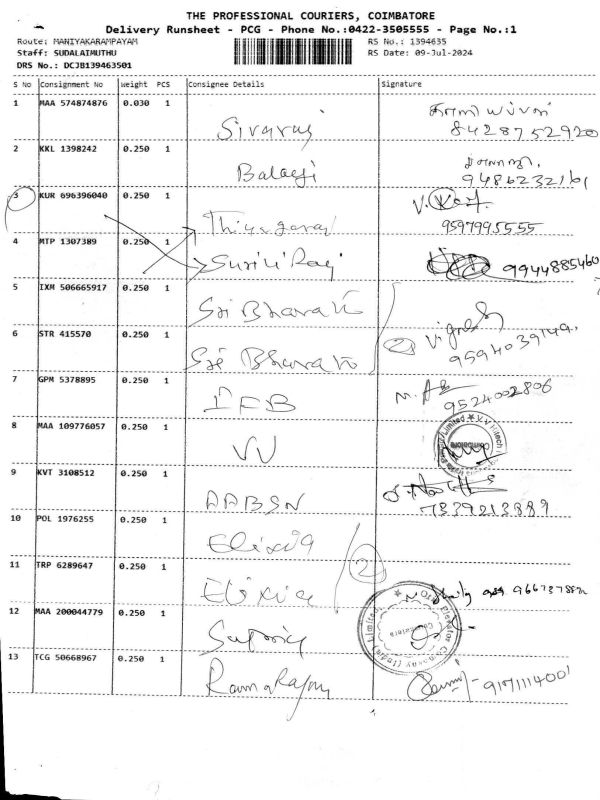 THE PROFESSIONAL COURIERS, COIMBATORE
Delivery Runsheet - PCG - Phone No.:0422-3505555 - Page No.:1
Route: MANIYAKARAMPAYAM RS No.: 1394635
Staff: SUDALAIMUTHU RS Date: 09-Jul-2024
DRS No.: DCJB139463501
S No Consignment No Weight PCS Consignee Details Signature
1 MAA 574874876 0.030 1 Sivaraj
8428752920
2 KKL 1398242 0.250 1 Balaji
9486232161
3 KUR 696396040 0.250 1 Thiyagaraj V.
9597995555
4 MTP 1307389 0.250 1 9944885460
5 IXM 506665917 0.250 1 Sri Bharath
6 STR 415570 0.250 1 Sri Bharath 2 Vignesh
9594039149
7 GPM 5378895 0.250 1 IFB
9524002806
8 MAA 109776057 0.250 1 VV
9 KVT 3108512 0.250 1 AABSN
7339213889
10 POL 1976255 0.250 1 Elixir
11 TRP 6289647 0.250 1 Elixir 2
12 MAA 200044779 0.250 1
13 TCG 50668967 0.250 1 RamaRajan